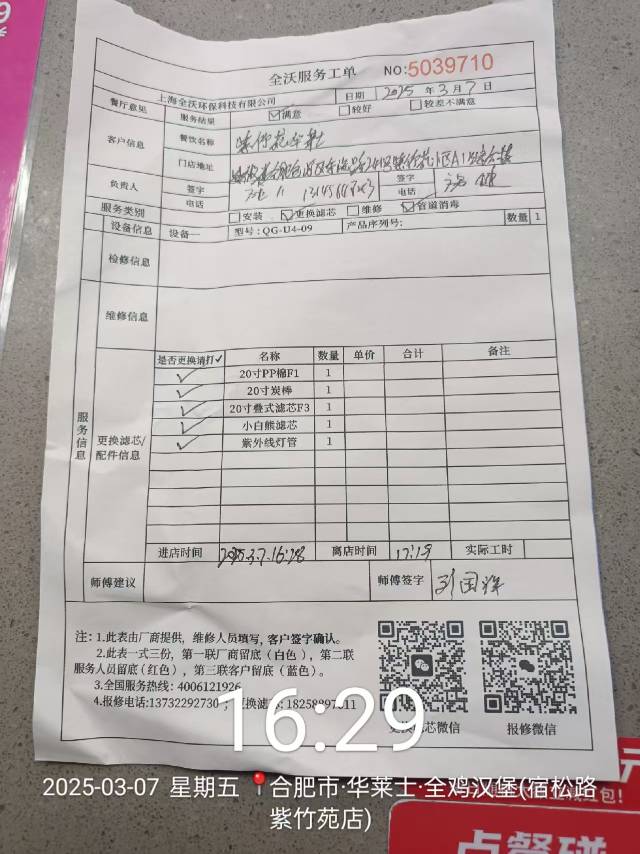 全沃服务工单 NO:5039710
上海全沃环保科技有限公司 日期 2025年3月7日
餐厅意见 服务结果 ☑满意 □较好 □较差不满意
客户信息 餐饮名称
门店地址
负责人 签字 签字
电话 电话
服务类别 □安装 ☑更换滤芯 □维修 ☑管道消毒
设备信息 设备一 型号:QG-U4-09 产品序列号: 数量 1
检修信息
维修信息
服务信息
更换滤芯/配件信息
是否更换请打✓ 名称 数量 单价 合计 备注
✓ 20寸PP棉F1 1
✓ 20寸炭棒 1
✓ 20寸叠式滤芯F3 1
✓ 小白熊滤芯 1
✓ 紫外线灯管 1
进店时间 2025.3.7. 16:28 离店时间 17:19 实际工时
师傅建议 师傅签字
注:1.此表由厂商提供,维修人员填写,客户签字确认。
2.此表一式三份,第一联厂商留底(白色),第二联
服务人员留底(红色),第三联客户留底(蓝色)。
3.全国服务热线:4006121926
4.报修电话:13732292730
更换滤芯微信 报修微信
16:29
2025-03-07 星期五 合肥市·华莱士·全鸡汉堡(宿松路
紫竹苑店)
点餐碰